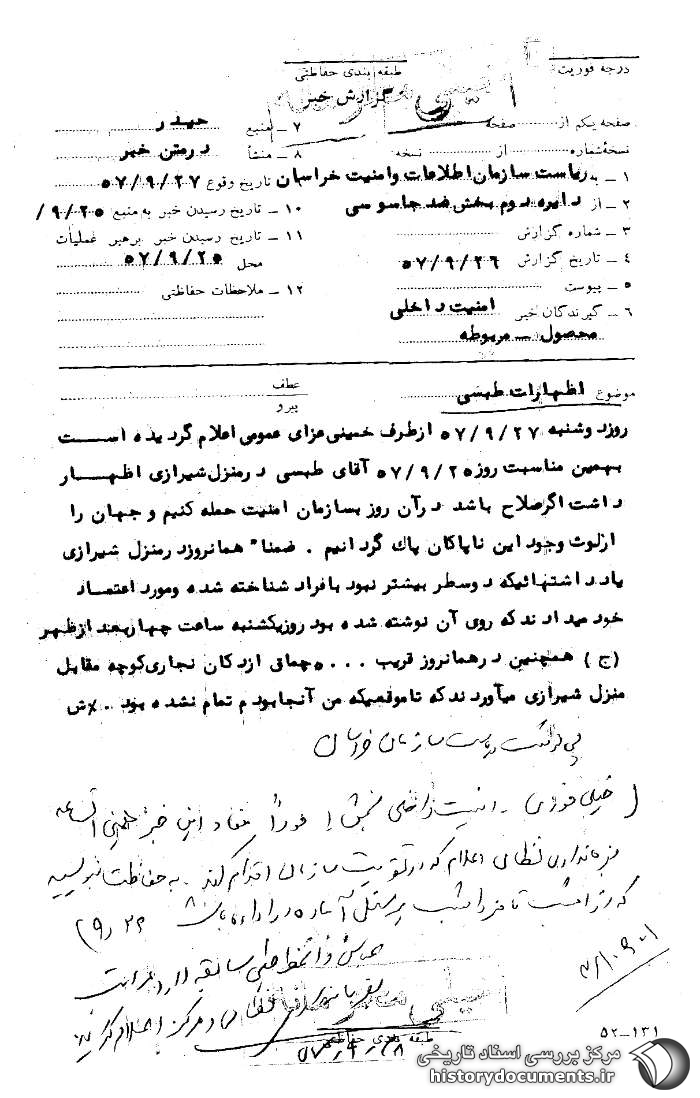 درجه فوریت
طبقه بندی حفاظتی
گزارش خبر
صفحه یکم از صفحه
۷ ــ منبع حیدر
نسخه شماره از نسخه
۸ ــ منشأ درمتن خبر
۱ ــ به ریاست سازمان اطلاعات وامنیت خراسان
۹ تاریخ وقوع ۵۷/۹/۲۷
۲ ــ از دایره دوم بخش ضد جاسوسی
۱۰ ــ تاریخ رسیدن خبر به منبع ۹/۲۵/
۳ ــ شماره گزارش
۱۱ ــ تاریخ رسیدن خبر برهبر عملیات
محل ۵۷/۹/۲۵
۴ ــ تاریخ گزارش ۵۷/۹/۲۶
۵ ــ پیوست
۱۲ ــ ملاحظات حفاظتی
۶ ــ گیرندگان خبر امنیت داخلی
محصول ــ مربوطه
موضوع اظهارات طبسی
عطف
پیرو
روزدوشنبه ۵۷/۹/۲۷ ازطرف خمینی عزای عمومی اعلام گردیده است
بهمین مناسبت روز ۵۷/۹/۲۵ آقای طبسی درمنزل شیرازی اظهار
داشت اگرسلاح باشد درآن روز بسازمان امنیت حمله کنیم و جهان را
ازلوث وجود این ناپاکان پاک گردانیم . ضمنا" همانروزد رمنزل شیرازی
یادداشتهائیکه دوسطر بیشتر نبود بافراد شناخته شده ومورد اعتماد
خود میدادند که روی آن نوشته شده بود روزیکشنبه ساعت چهاربعد ازظهر
(ج) همچنین درهمانروز قریب ۵۰۰۰ چماق ازدکان نجاری کوچه مقابل
منزل شیرازی میآوردند که تاموقعیکه من آنجابودم تمام نشده بود .
ریاست سازمان خراسان
خیلی فوری ـ امنیت داخلی فوراً مفاد این خبر
فرمانداری نظامی اعلام که در تقویت سازمان اقدام کنند . به حفاظت
که از امشب تا فردا شب پرسنل آماده در اداره باشند
۵۲-۱۳۱
طبقه بندی حفاظتی
مرکز بررسی اسناد تاریخی
historydocuments.ir